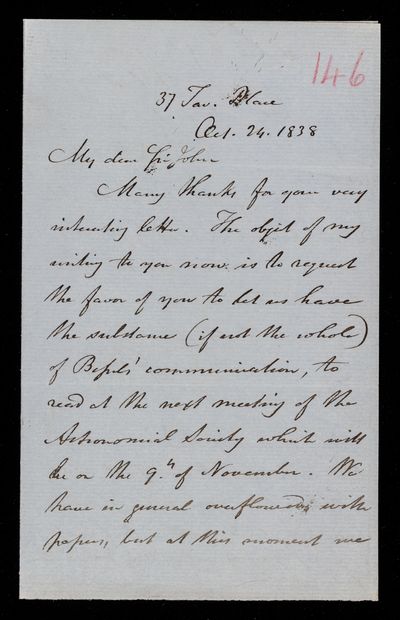 146
37 Tav. Place
Oct. 24. 1838
My dear Sir John
Many thanks for your very
interesting letter. The object of my
writing to you now is to request
the favor of you to let us have
the substance (if not the whole)
of Bessel's communication, to
read at the next meeting of the
Astronomical Society which will
be on the 9.th of November. We
have in general overflowed with
papers, but at this moment we